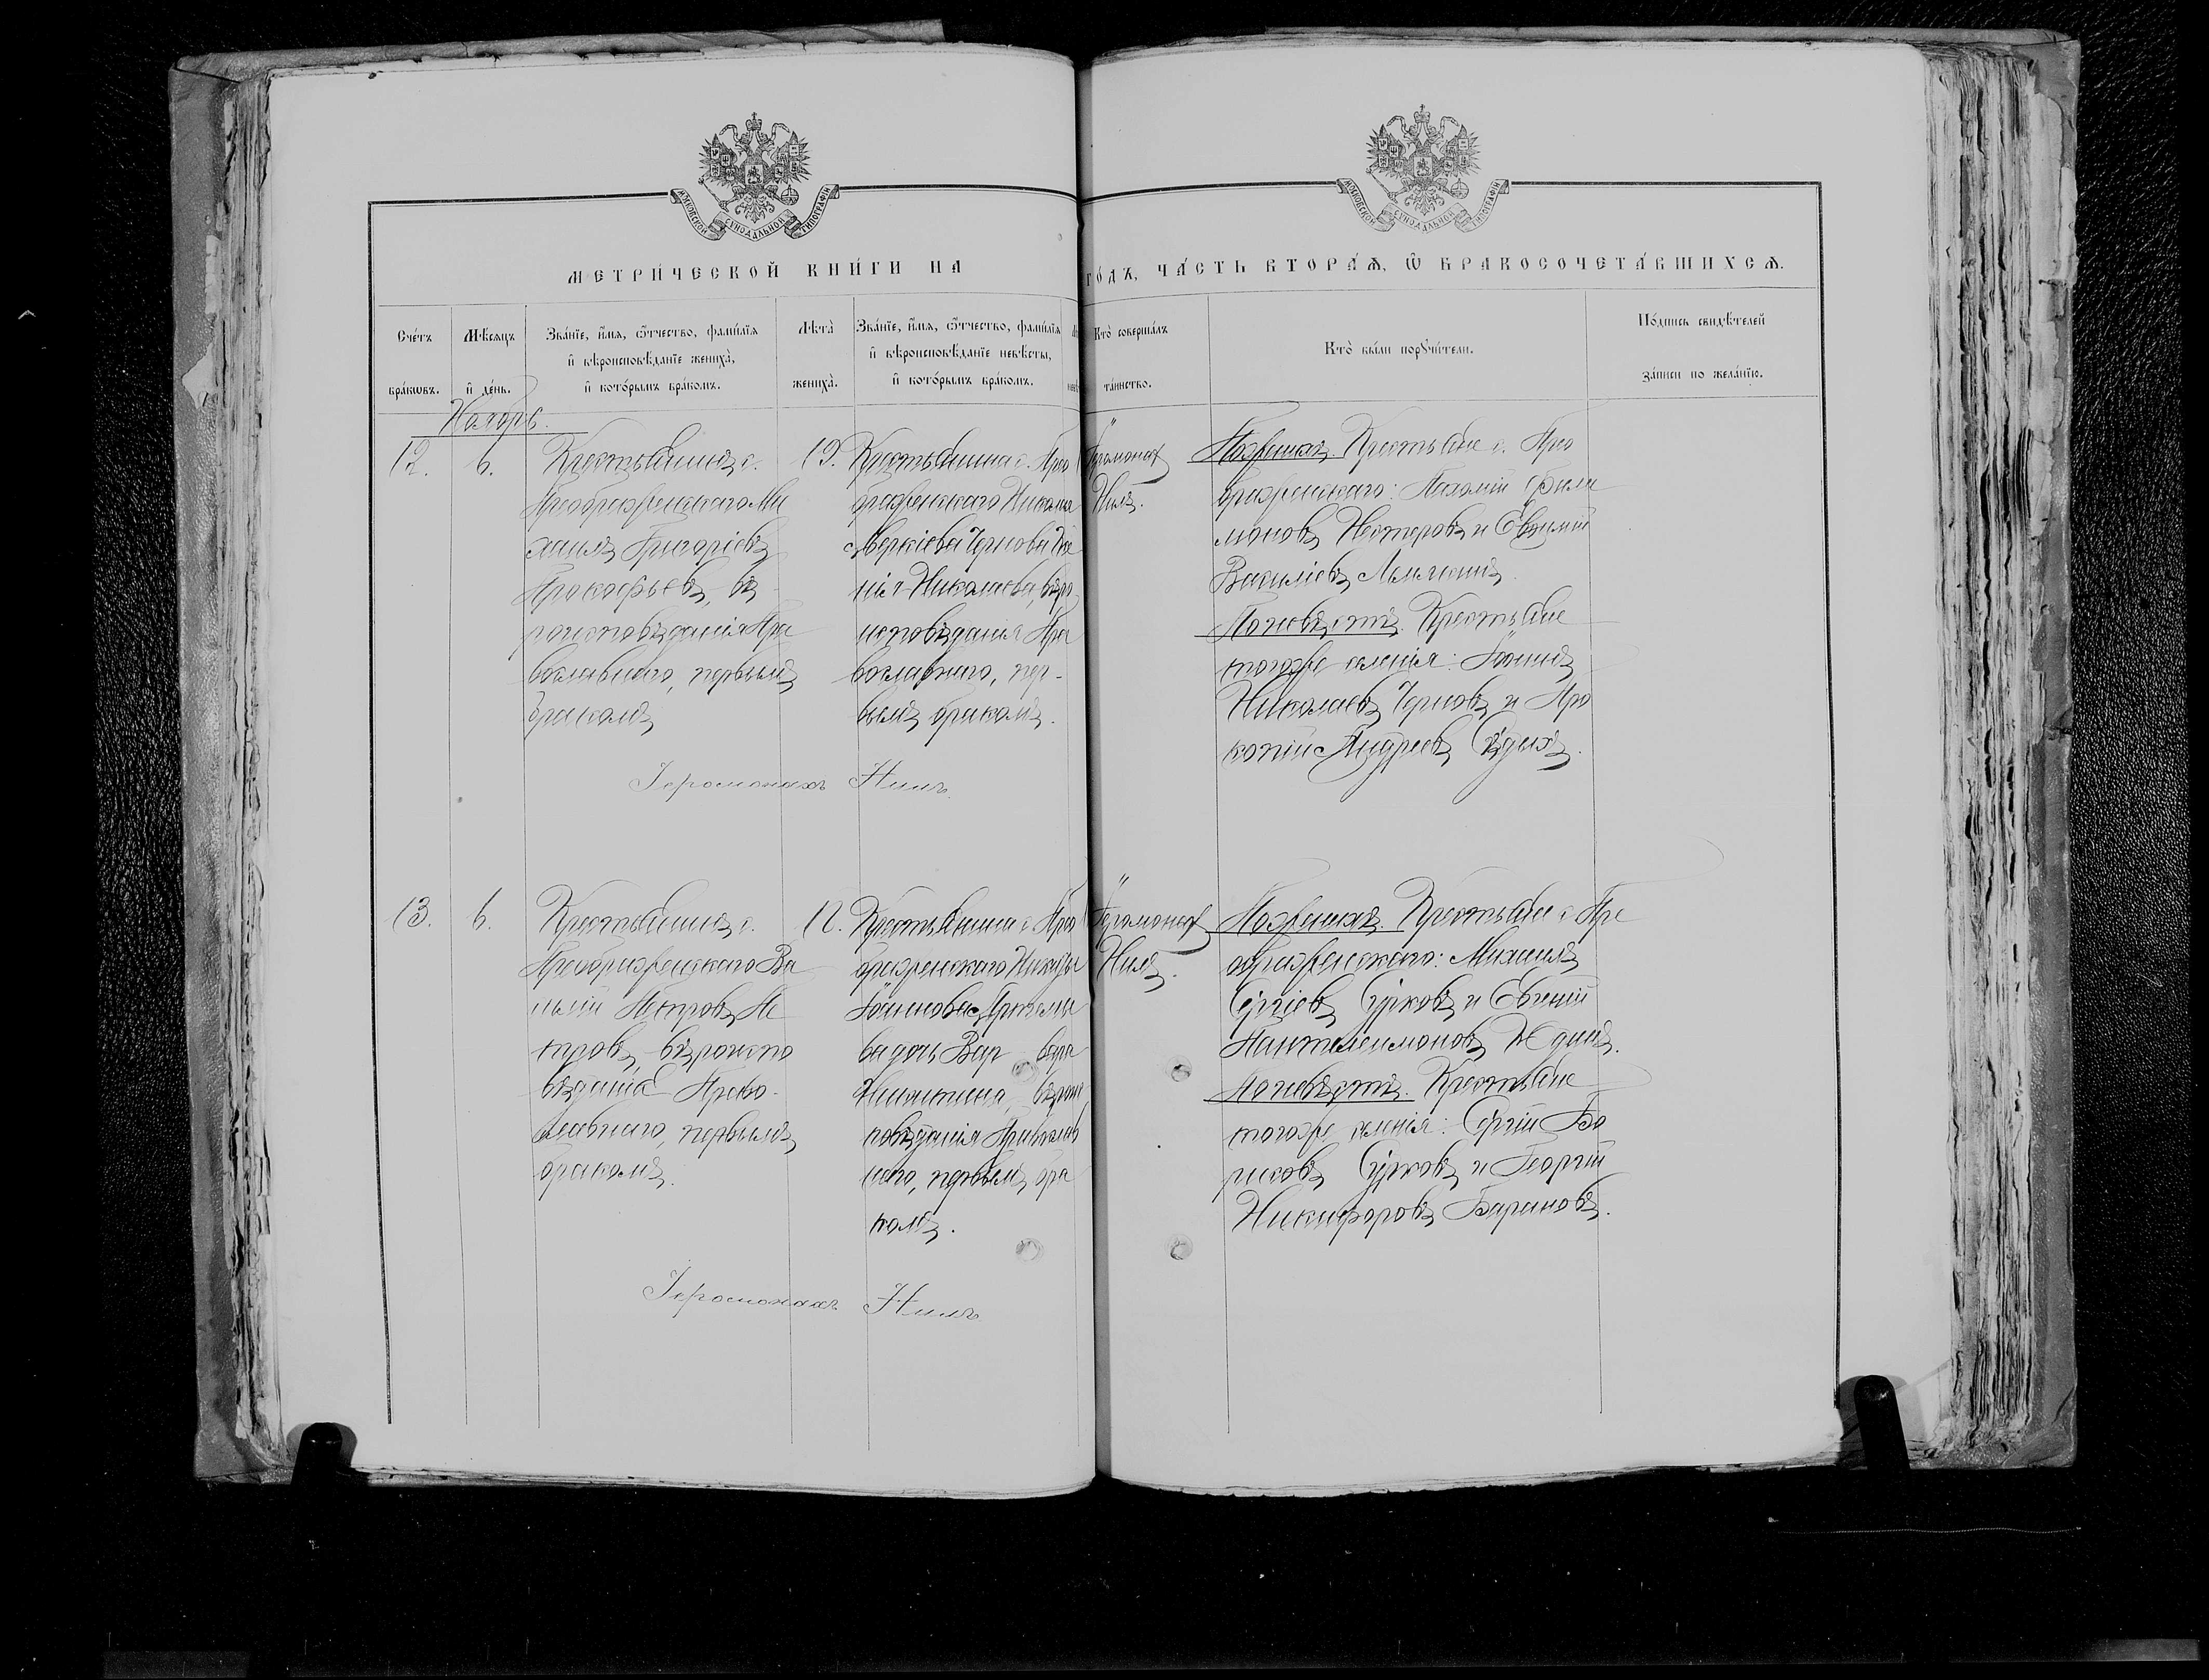 МОСКОВСКОЙ СѴНОДАЛЬНОЙ ТИПОГРАФІИ
МОСКОВСКОЙ СѴНОДАЛЬНОЙ ТИПОГРАФІИ
МЕТРИ́ЧЕСКОЙ КНИ́ГИ НА
ГО́ДЪ, ЧА́СТЬ ВТОРА́Ѧ, Ѽ БРАКОСОЧЕТА́ВШИХСѦ.
Сче́тъ
бра́кѡвъ.
Мѣ́сяцъ
и҆ де́нь.
Зва́нїе, и҆́мѧ, ѻ҆́тчество, фами́лїѧ
и҆ вѣроисповѣ́данїе жениха̀,
и҆ кото́рымъ бра́комъ.
Лѣ́та
жениха̀.
Зва́нїе, и҆́мѧ, ѻ҆́тчество, фами́лїѧ
и҆ вѣроисповѣ́данїе невѣ́сты,
и҆ кото́рымъ бра́комъ.
Кто̀ соверша́лъ
та́инство.
Кто̀ бы́ли порꙋчи́тели.
По́дпись свидѣ́телей
за́писи по жела́нїю.
Ноябрь.
12.
6.
Крестьянинъ с.
Преображенскаго Ми
хаилъ Григоріевъ
Прокофьевъ, вѣ
роисповѣданія Пра
вославнаго, первымъ
бракомъ
19.
Крестьянина с. Прео
браженскаго Николая
Аверкіева Чернова
Николаева, вѣро
исповѣданія Пра
вославнаго, пер-
вымъ бракомъ.
Іеромонах
Нилъ.
По женихѣ. Крестьяне с. Прео
браженскаго: Пахомій Фили
моновъ Нестеровъ и Евфимій
Василіевъ
По невѣстѣ. Крестьяне
тогоже селенія: Іоаннъ
Николаевъ Черновъ и Про
копій Андреевъ Сѣдыхъ.
Іеромонахъ Нилъ.
13.
6.
Крестьянинъ с.
Преображенскаго Ва
силій Петровъ Пе
тровъ, вѣроиспо
вѣданія Право-
славнаго, первымъ
бракомъ.
Крестьянина с. Прео
браженскаго Никиты
Іоаннова Артемье
ва дочь Вар вара
Никитина, вѣроис
повѣданія Православ
наго, первымъ бра
комъ.
Іеромонах
Нилъ.
По женихѣ. Крестьяне с. Пре
ображенскаго: Михаилъ
Сергіевъ Сурковъ и Евгеній
Пантелеимоновъ Юдинъ.
По невѣстѣ. Крестьяне
тогоже селенія: Сергій Бо
рисовъ Сурковъ и Георгій
Никифоровъ Барановъ.
Іеромонахъ Нилъ